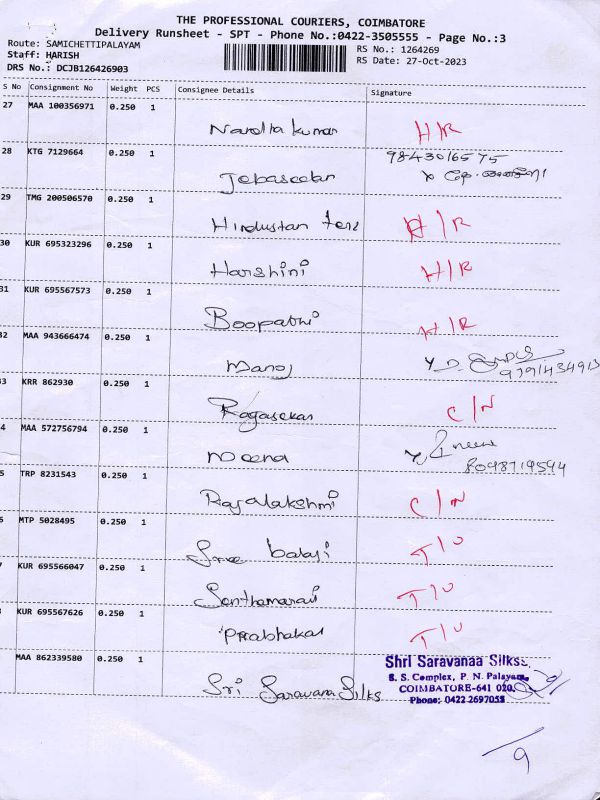 THE PROFESSIONAL COURIERS, COIMBATORE
Delivery Runsheet - SPT - Phone No.:0422-3505555 - Page No.:3
Route: SAMICHETTIPALAYAM
Staff: HARISH
DRS No.: DCJB126426903
RS No.: 1264269
RS Date: 27-Oct-2023
S No Consignment No Weight PCS Consignee Details Signature
27 MAA 100356971 0.250 1
Nandha kumar H/R
28 KTG 7129664 0.250 1 9843016575
Jebaseelan
29 TMG 200506570 0.250 1
Hindustan H/R
30 KUR 695323296 0.250 1
Harshini H/R
31 KUR 695567573 0.250 1
Boopathi H/R
32 MAA 943666474 0.250 1
Manoj
3 KRR 862930 0.250 1
Ragasekar C/N
4 MAA 572756794 0.250 1
Meena
8098719594
5 TRP 8231543 0.250 1
Rajalakshmi C/N
6 MTP 5028495 0.250 1
Sree balaji T/U
KUR 695566047 0.250 1
Senthamarai T/U
KUR 695567626 0.250 1
Prabhakar T/U
MAA 862339580 0.250 1
Sri Saravana Silks
Shri Saravanaa Silkss,
S. S. Complex, P. N. Palayam,
COIMBATORE-641 020.
Phone: 0422 2697058
9